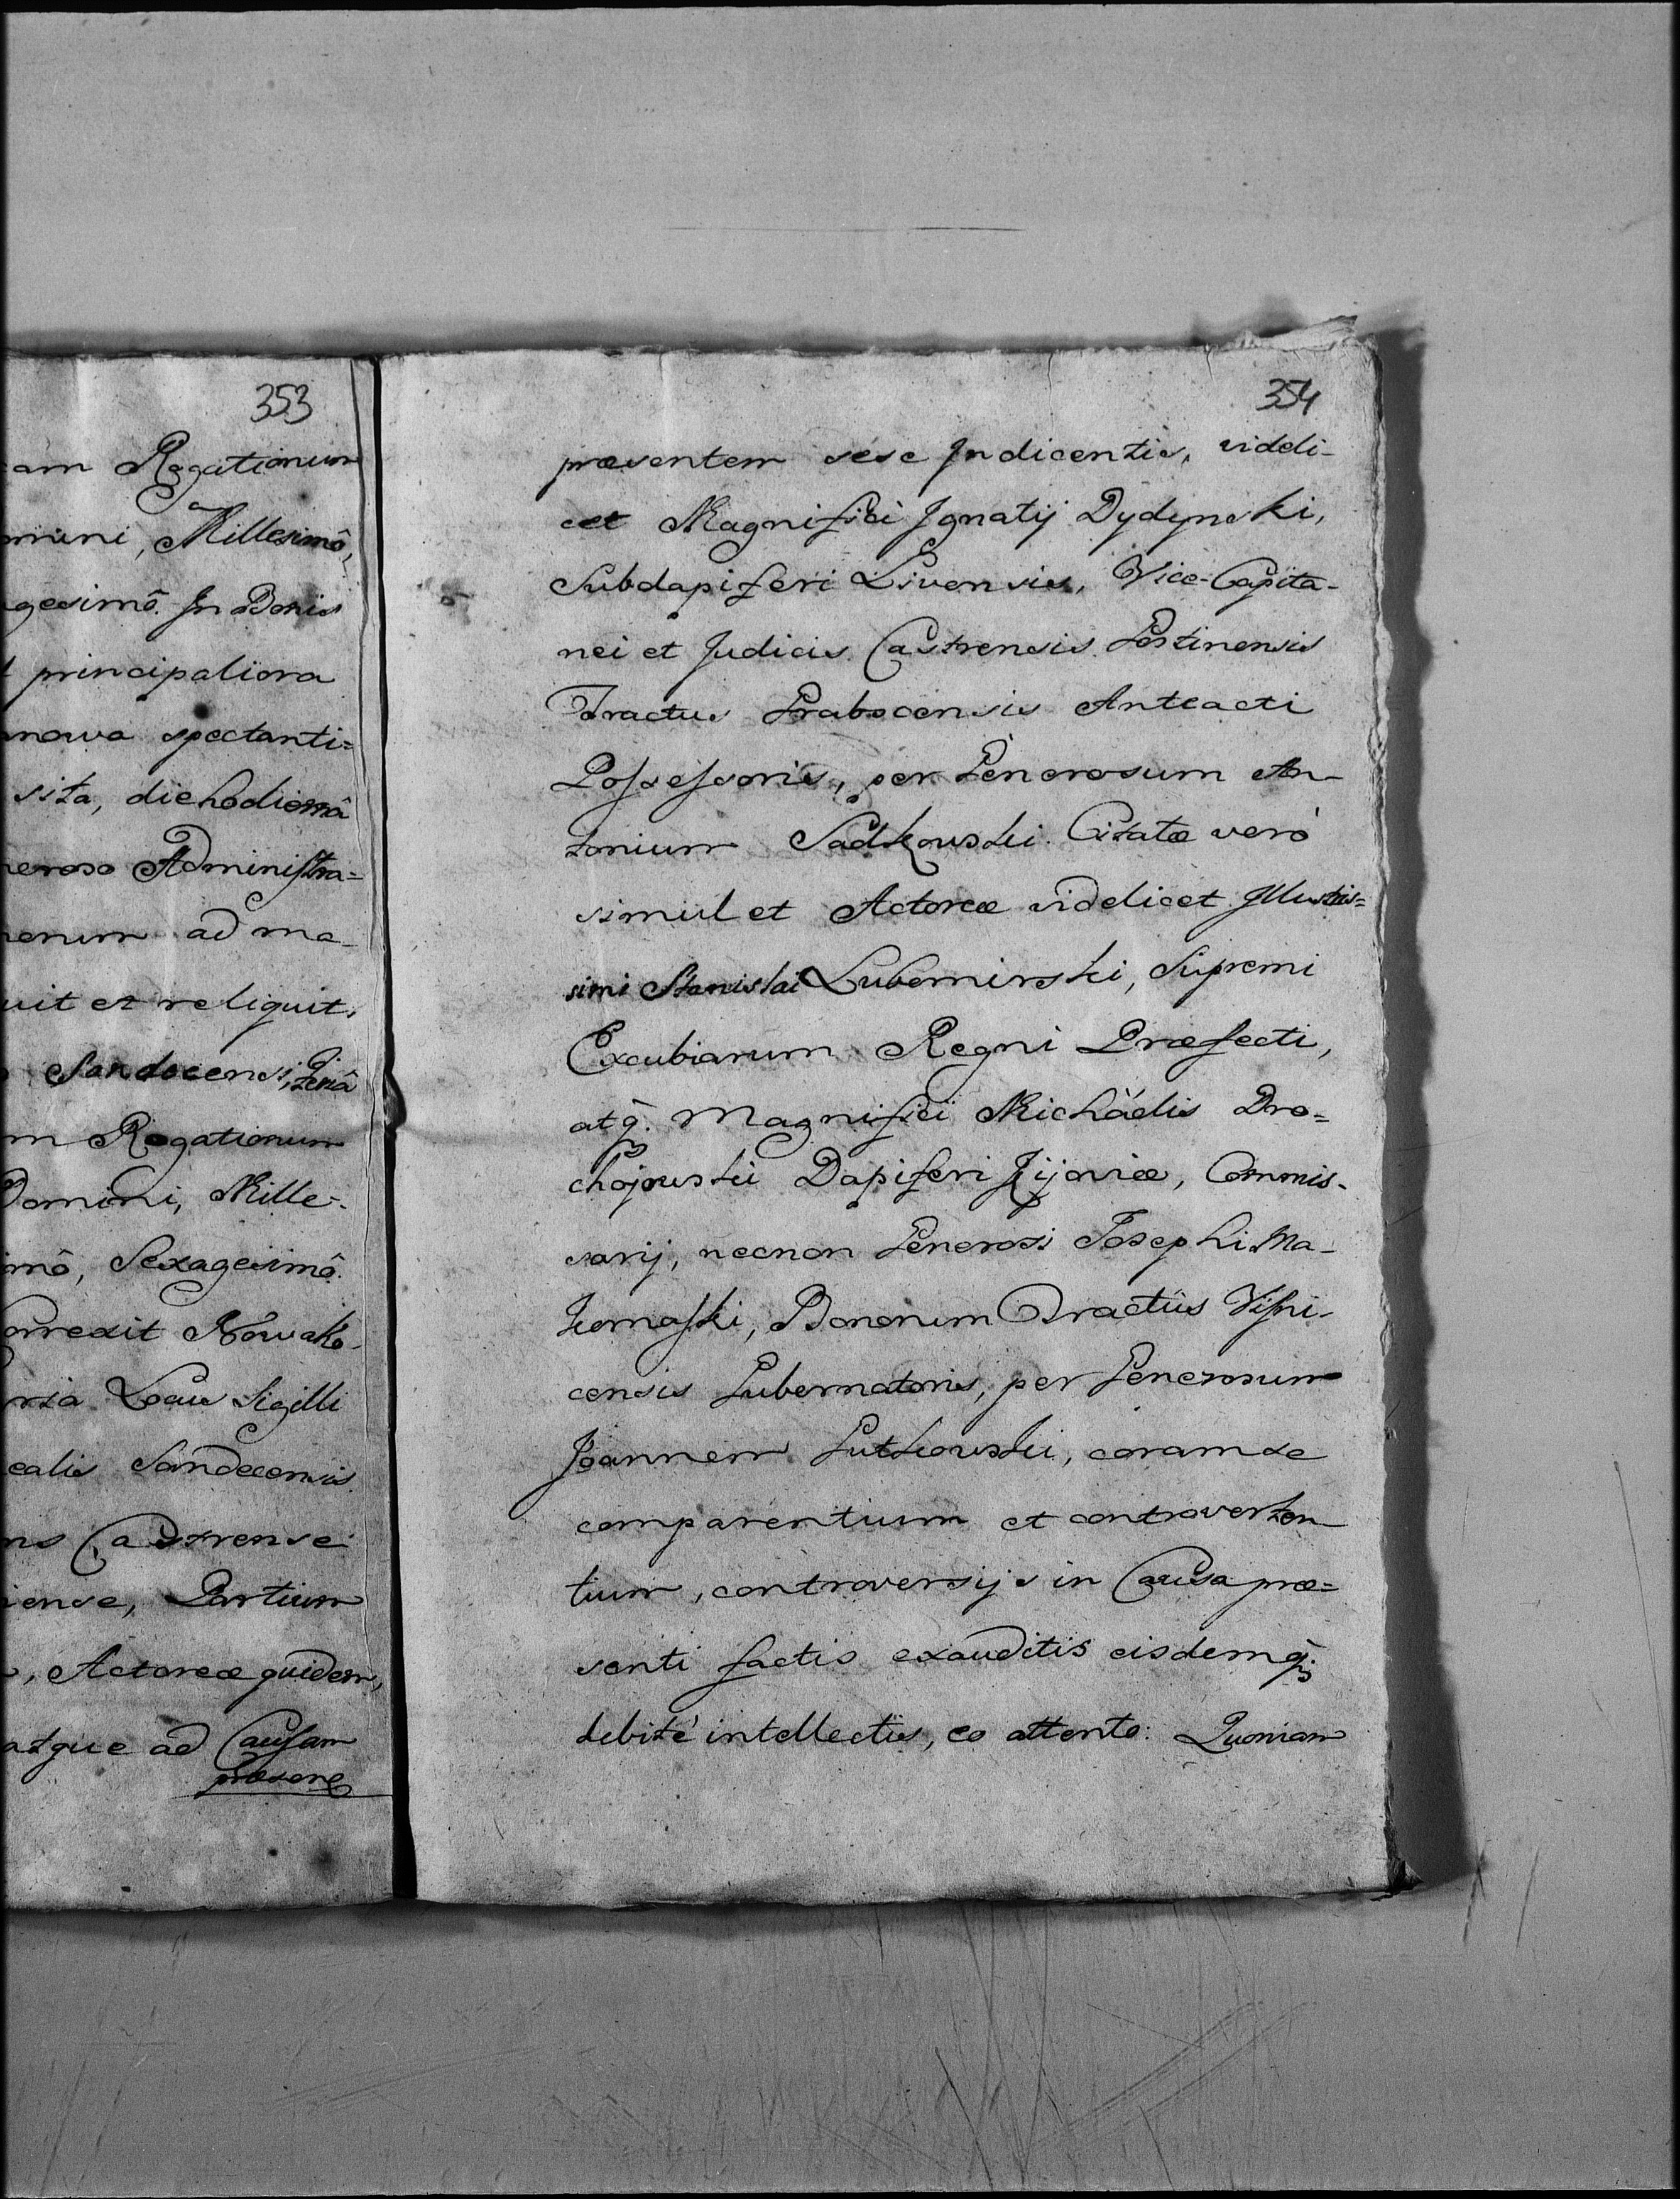 353
am Rogationum
mini, Millesimô,
gesimô. In Bonis
principaliora
nowa spectanti=
sita, die hodiernâ
neroso Administra=
nenum ad ma-
uit et reliquit.
Sandecensi, Feriâ
m Rogationum
Domini, Mille-
imô, Sexagesimô.
orrexit Nowako-
ria Locus Sigilli
ealis Sandecensis
ns Castrense
iense, Partium
, Actoreæ quidem,
atque ad Causam
præsene
354
præsentem sese Indicentis, viddi-
cet Magnifici Ignatij Dydynski,
Subdapiferi Livensis, Vice-Capita-
nei et Judicis Castrensis Gostinensis
Tractus Grabocensis Anteacti
Possessoris, per Generosum An-
tonium Sadkowski. Citatæ verò
simul et Actoreæ videlicet Illustris=
simi Stanislai Lubomirski, Supremi
Excubiarum Regni Præfecti,
atq. Magnifici Michäelis Dro=
chojowski Dapiferi Kijoviæ, Commis-
sarij, necnon Generosi Josephi Ma-
komaski, Bonorum Tractûs Visni-
censis Gubernatoris, per Generosum
Joannem Gutkowski, coram se
comparentium et controverten
tium, controversijs in Causa præ=
senti factis exauditis eisdemq;
debitè intellectis, eo attento: Quoniam